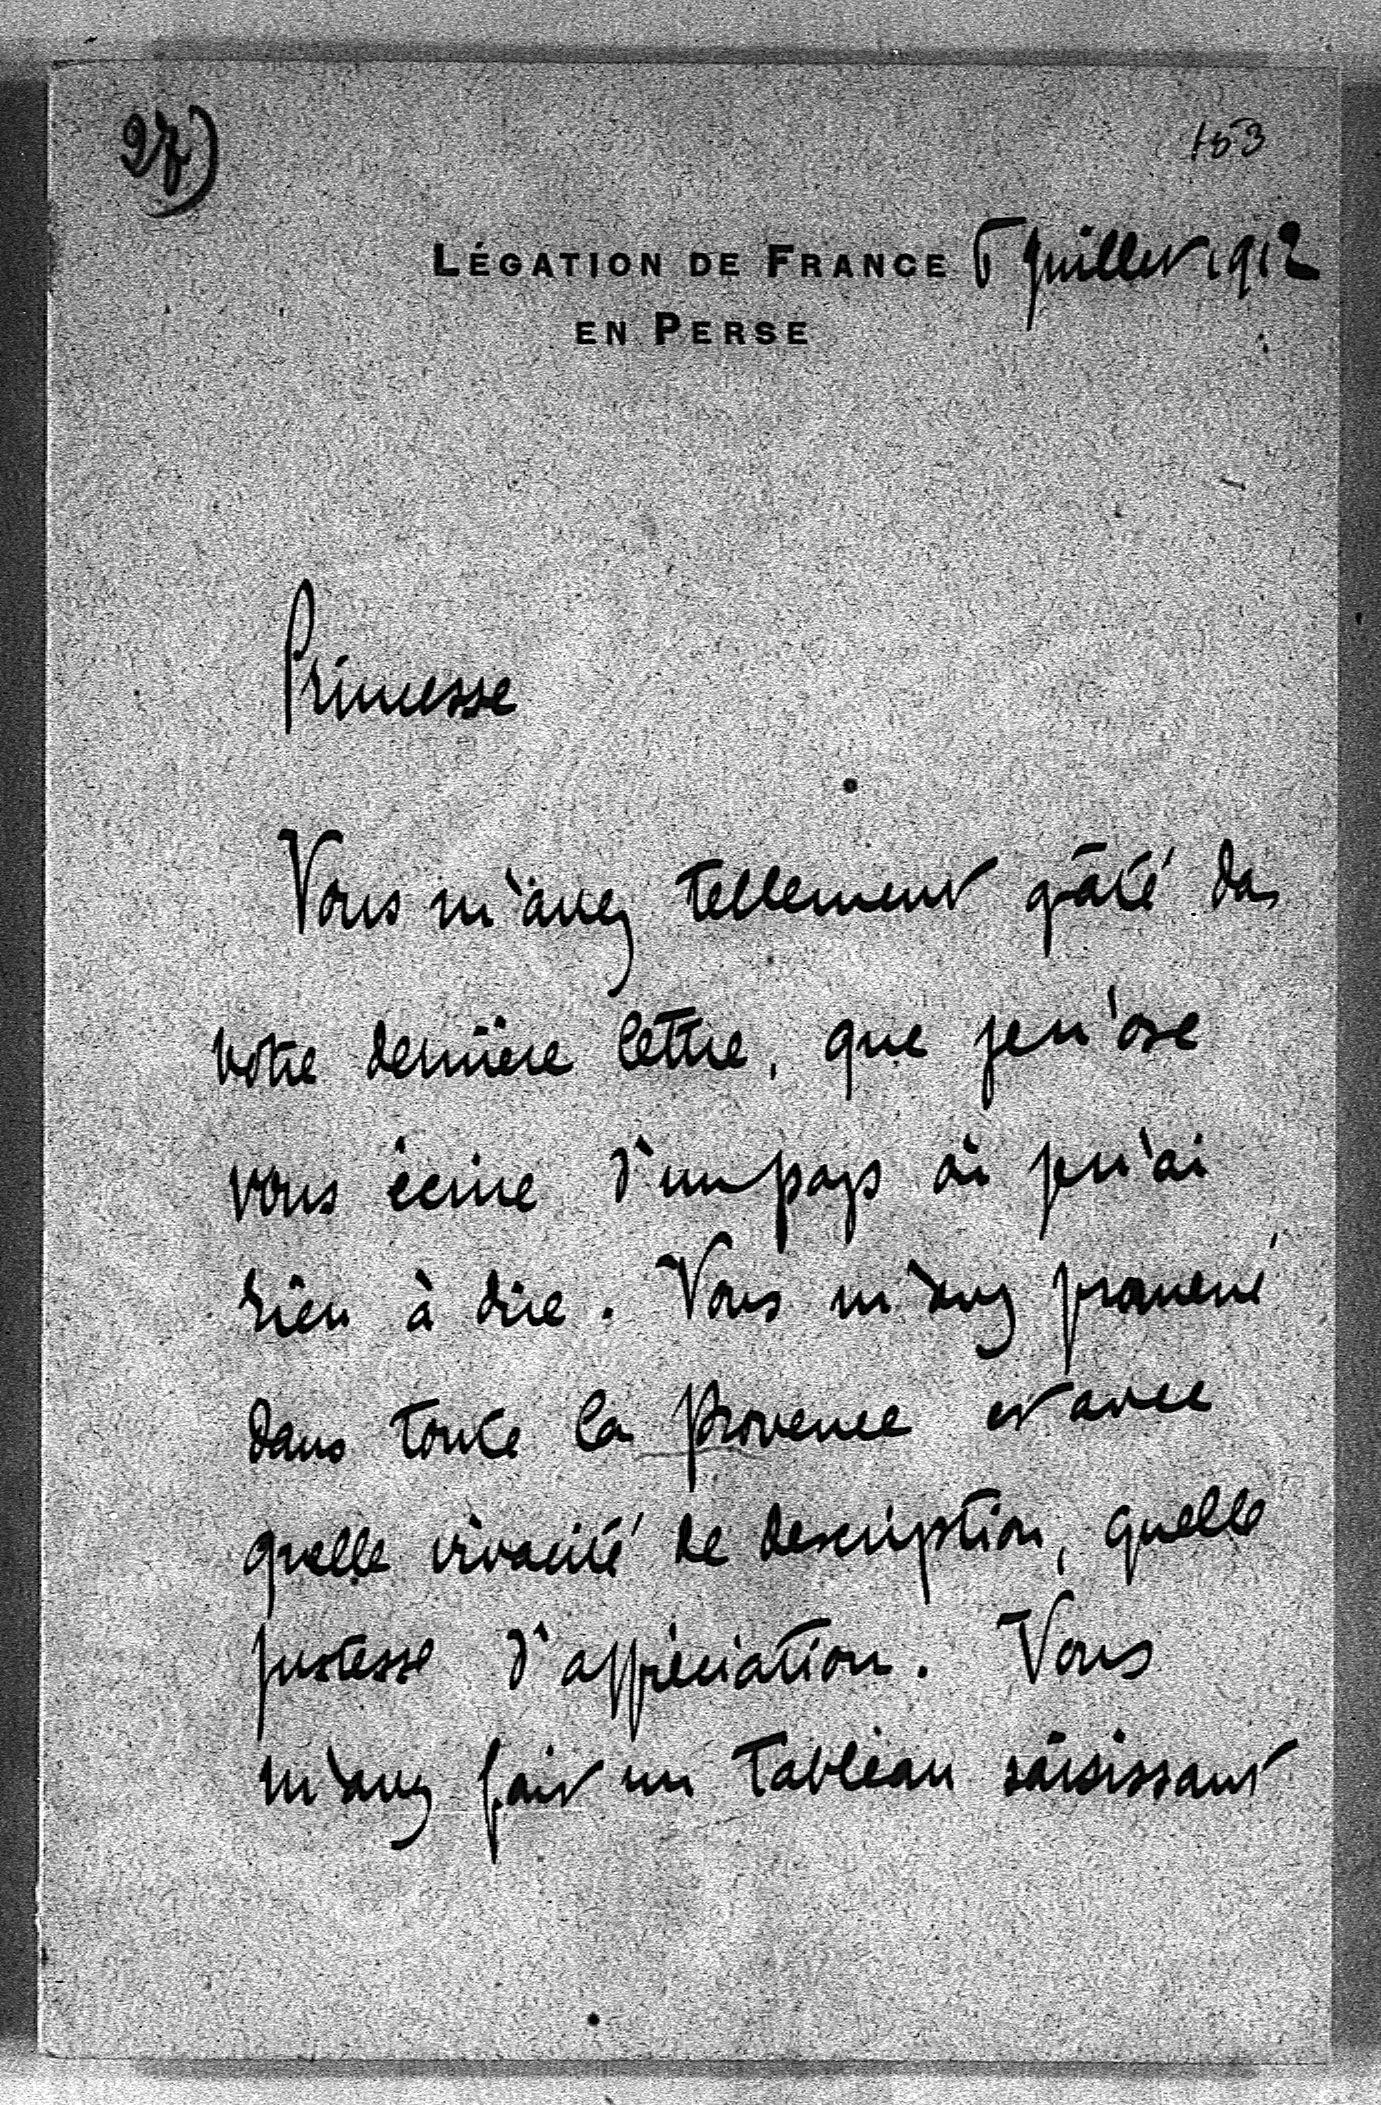 27)
153
LÉGATION DE FRANCE
EN PERSE
Juillet 1912
Princesse
Vous m'avez tellement gâté dans
votre dernière lettre, que je n'ose
vous écrire d'un pays où je n'ai
rien à dire. Vous m'avez promené
dans toute la Provence et avec
quelle vivacité de description, quelle
justesse d'appréciation. Vous
m'avez fait un tableau saisissant